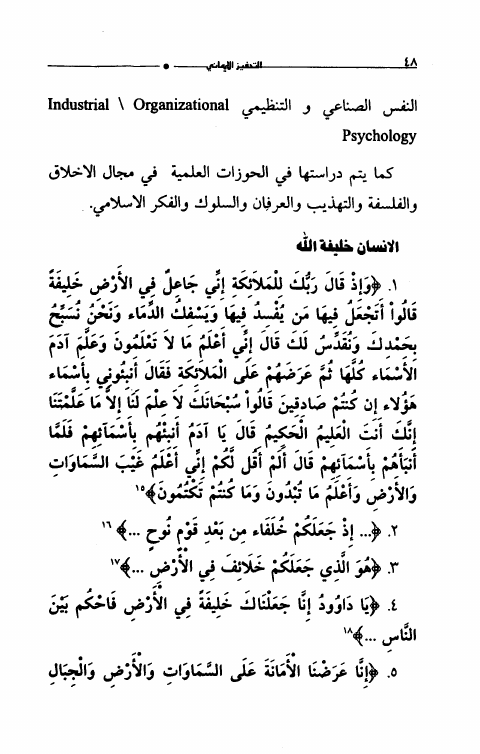 ٤٨ التحفيز الايماني
النفس الصناعي و التنظيمي Industrial \ Organizational
Psychology
كما يتم دراستها في الحوزات العلمية في مجال الاخلاق
والفلسفة والتهذيب والعرفان والسلوك والفكر الاسلامي.
الانسان خليفة الله
١. ﴿وَإِذْ قَالَ رَبُّكَ لِلْمَلَائِكَةِ إِنِّي جَاعِلٌ فِي الأَرْضِ خَلِيفَةً
قَالُواْ أَتَجْعَلُ فِيهَا مَن يُفْسِدُ فِيهَا وَيَسْفِكُ الدِّمَاء وَنَحْنُ نُسَبِّحُ
بِحَمْدِكَ وَنُقَدِّسُ لَكَ قَالَ إِنِّي أَعْلَمُ مَا لاَ تَعْلَمُونَ وَعَلَّمَ آدَمَ
الأَسْمَاء كُلَّهَا ثُمَّ عَرَضَهُمْ عَلَى الْمَلاَئِكَةِ فَقَالَ أَنبِئُونِي بِأَسْمَاء
هَؤُلاء إِن كُنتُمْ صَادِقِينَ قَالُواْ سُبْحَانَكَ لاَ عِلْمَ لَنَا إِلاَّ مَا عَلَّمْتَنَا
إِنَّكَ أَنتَ الْعَلِيمُ الْحَكِيمُ قَالَ يَا آدَمُ أَنبِئْهُم بِأَسْمَآئِهِمْ فَلَمَّا
أَنبَأَهُمْ بِأَسْمَآئِهِمْ قَالَ أَلَمْ أَقُل لَّكُمْ إِنِّي أَعْلَمُ غَيْبَ السَّمَاوَاتِ
وَالأَرْضِ وَأَعْلَمُ مَا تُبْدُونَ وَمَا كُنتُمْ تَكْتُمُونَ﴾١٥
٢. ﴿... إِذْ جَعَلَكُمْ خُلَفَاء مِن بَعْدِ قَوْمِ نُوحٍ ...﴾ ١٦
٣. ﴿هُوَ الَّذِي جَعَلَكُمْ خَلَائِفَ فِي الْأَرْضِ ...﴾١٧
٤. ﴿يَا دَاوُودُ إِنَّا جَعَلْنَاكَ خَلِيفَةً فِي الْأَرْضِ فَاحْكُم بَيْنَ
النَّاسِ ...﴾١٨
٥. ﴿إِنَّا عَرَضْنَا الْأَمَانَةَ عَلَى السَّمَاوَاتِ وَالْأَرْضِ وَالْجِبَالِ